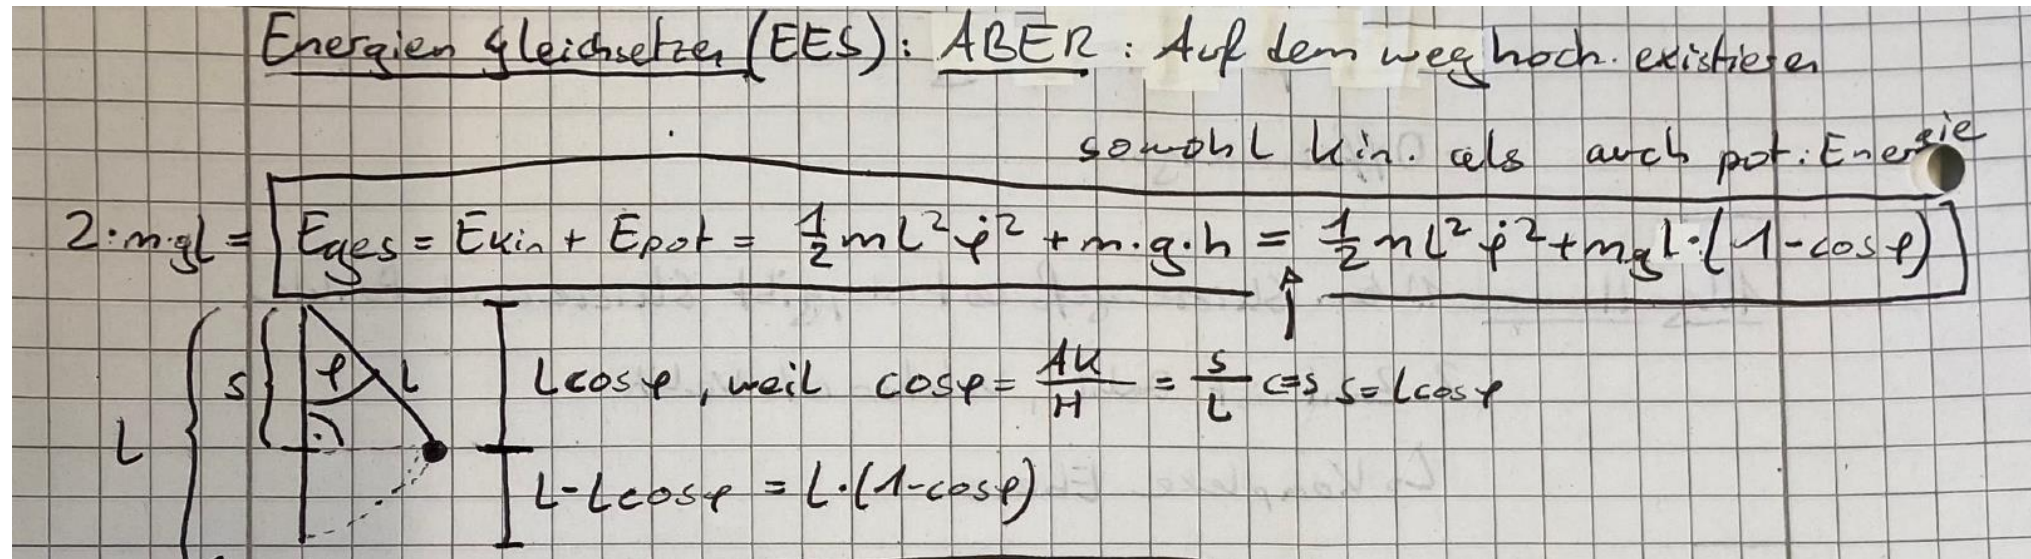 Energien gleichsetzen (EES): ABER: Auf dem weg hoch existieren
sowohl kin. als auch pot. Energie
2·m·gL = Eges = Ekin + Epot = 1/2 mL² φ̇² + m·g·h = 1/2 mL² φ̇² + mgL·(1-cosφ)
L s φ L Lcosφ, weil cosφ = AK/H = s/L <=> s=Lcosφ
L-Lcosφ = L·(1-cosφ)